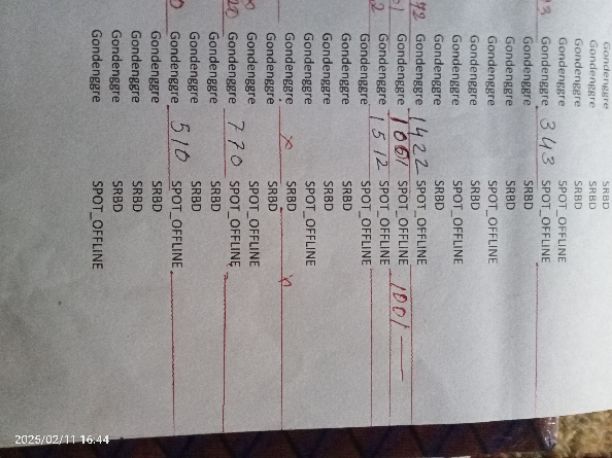 Gondenggre SRBD
Gondenggre SRBD
Gondenggre SRBD
Gondenggre SPOT_OFFLINE
Gondenggre 343 SPOT_OFFLINE
Gondenggre SRBD
Gondenggre SRBD
Gondenggre SPOT_OFFLINE
Gondenggre SRBD
Gondenggre SPOT_OFFLINE
Gondenggre SRBD
92 Gondenggre 1422 SPOT_OFFLINE
Gondenggre 1001 SPOT_OFFLINE 1001
2 Gondenggre 1512 SPOT_OFFLINE
Gondenggre SPOT_OFFLINE
Gondenggre SRBD
Gondenggre SRBD
Gondenggre SPOT_OFFLINE
Gondenggre x SRBD x
Gondenggre SRBD
Gondenggre SPOT_OFFLINE
20 Gondenggre 770 SPOT_OFFLINE
Gondenggre SRBD
Gondenggre SRBD
0 Gondenggre 510 SPOT_OFFLINE
Gondenggre SRBD
Gondenggre SRBD
Gondenggre SRBD
Gondenggre SPOT_OFFLINE
2025/02/11 16:44